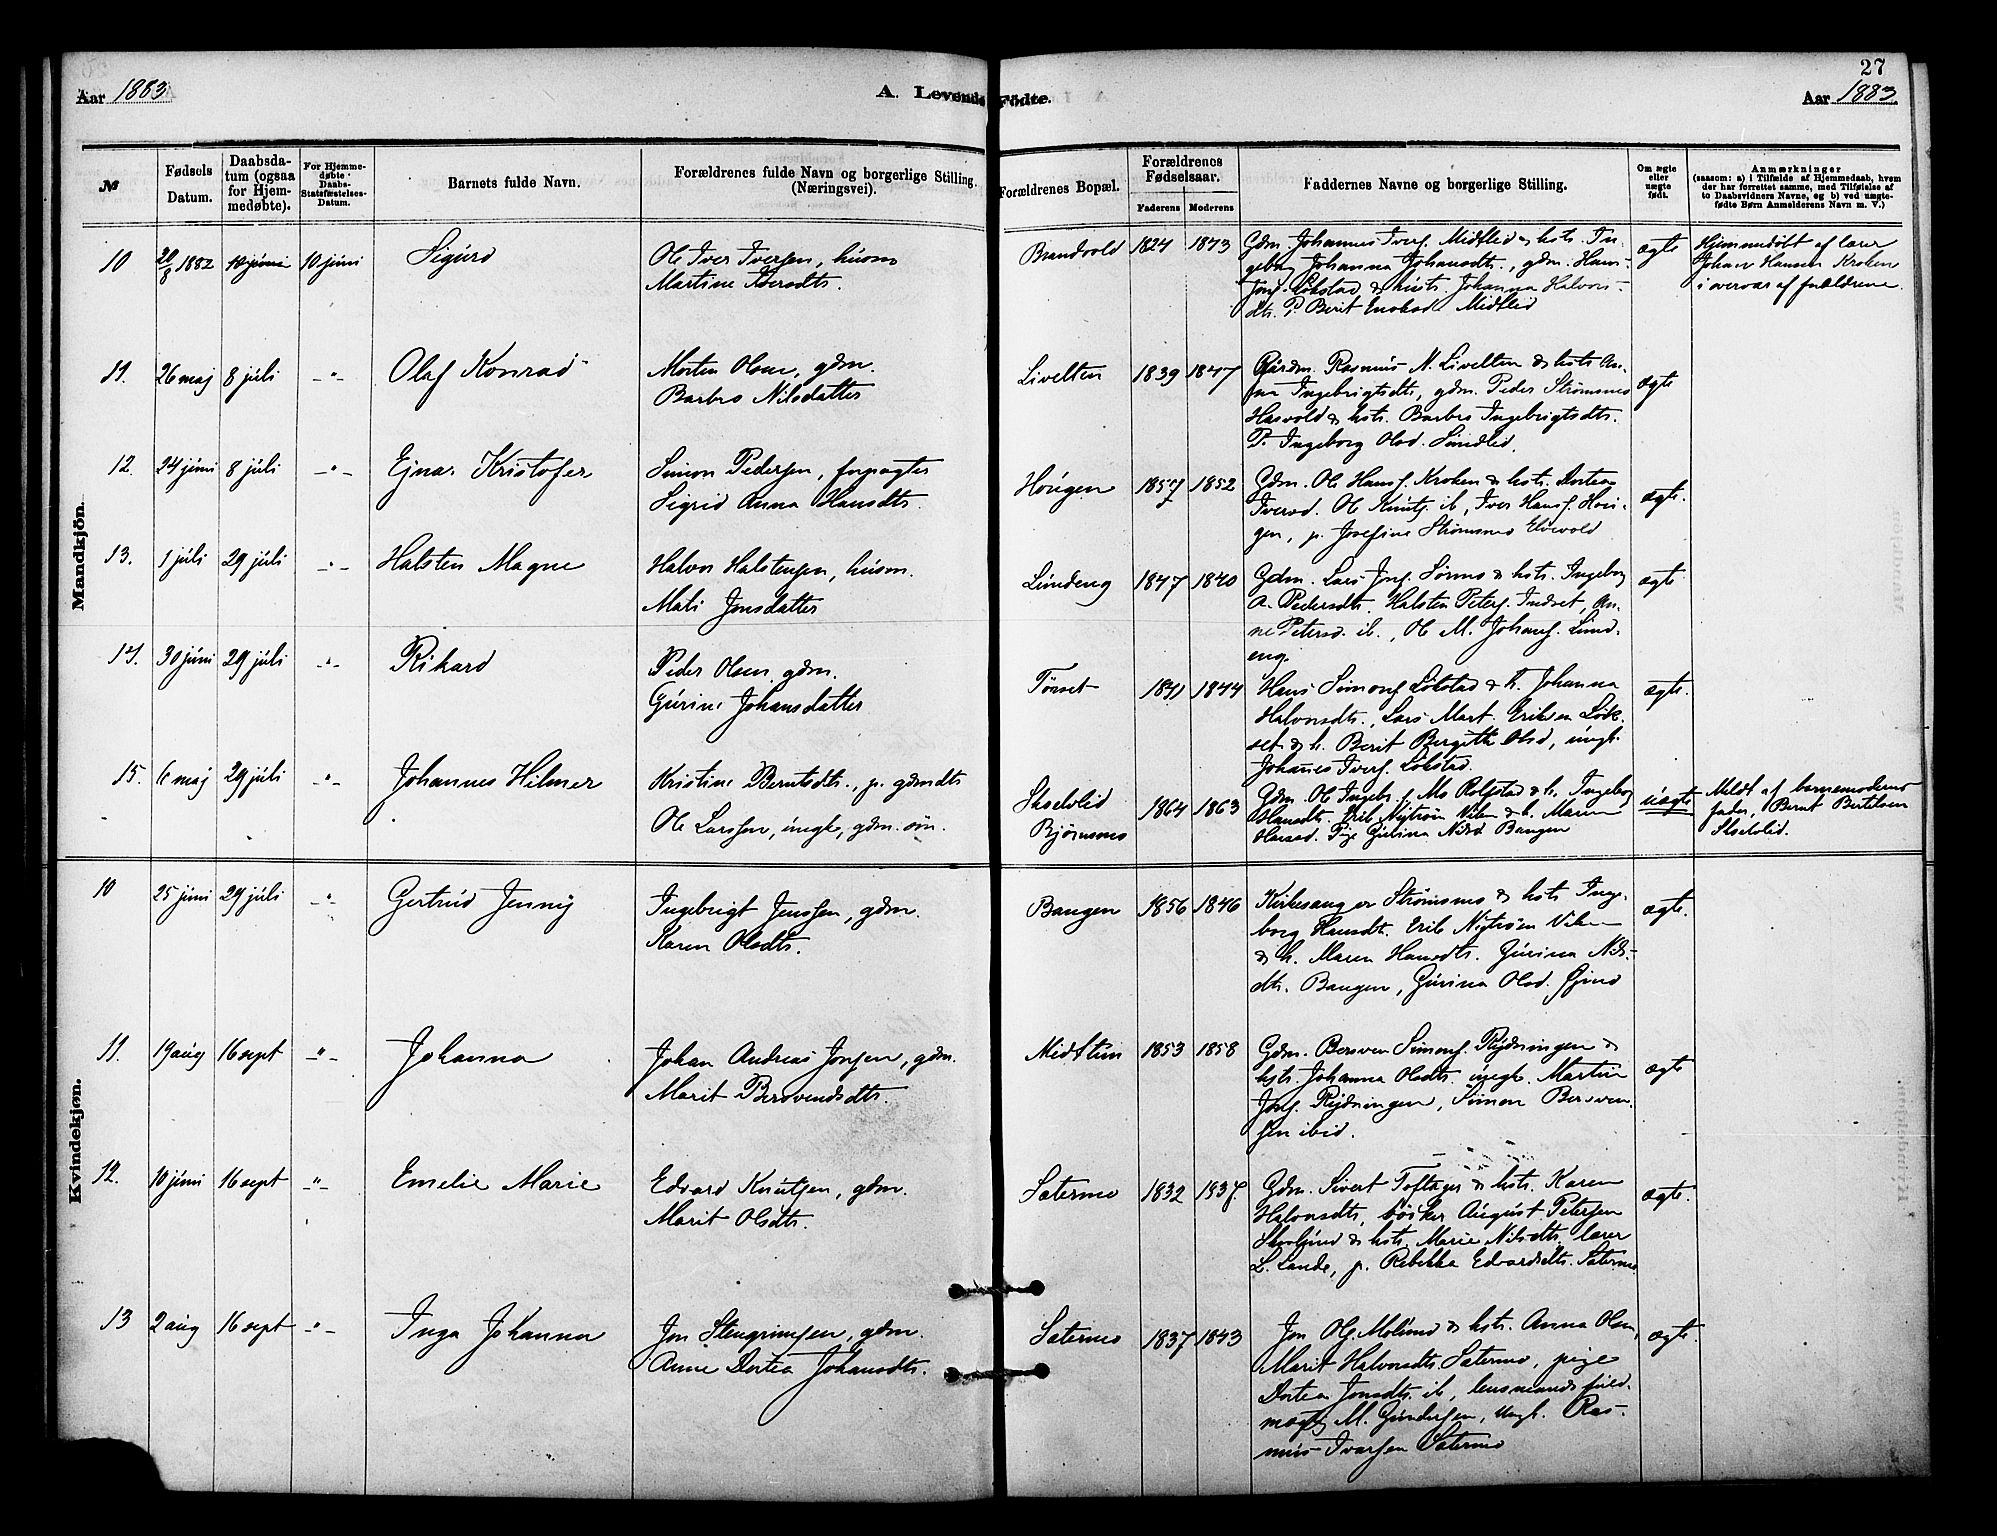 Aar 1883
A. Levende Fødte.
27
Aar 1883.
№
Fødsels Datum.
Daabsdatum (ogsaa for Hjemmedøbte).
For Hjemmedøbte Daabs-Stadfæstelses-Datum.
Barnets fulde Navn.
Forældrenes fulde Navn og borgerlige Stilling. (Næringsvei).
Forældrenes Bopæl.
Forældrenes Fødselsaar.
Faderens
Moderens
Faddernes Navne og borgerlige Stilling.
Om ægte eller uægte født.
Anmærkninger
(saasom: a) i Tilfælde af Hjemmedaab, hvem der har forrettet samme, med Tilføielse af to Daabsvidners Navne, og b) ved uægtefødte Børn Anmelderens Navn m. V.)
Mandkjön.
10 20/8 1882 10 júni 10 júni Sigúrd
Ole Iver Iversen, húsm
Martine Iversdtr.
Brandvold 1824 1843
Gdm. Johannes Ivers. Midtlid & hstr. In-
geborg Johanna Johansdtr., gdm. Hans
Jons. Løkstad & hústr. Johanna Halvors-
dtr. P. Berit Midtlid
ægte
Hjemmedøbt af lærer
Johan Hansen Kroken
i overvær af forældrene
11. 26 maj 8 júli -"- Olaf Konrad
Morten Olsen, gdm.
Barbro Nilsdatter
Livelten 1839 1847
Gårdm. Rasmús N. Livelten & hstr. An-
na Ingebrigtsdtr, gdm. Peder Strømsnes
Hasvold & hstr. Barbro Ingebrigtsdtr.
P. Ingeborg Olsd. Sundlid.
ægte
12. 24 júni 8 júli -"- Ejnar Kristofer
Simon Pedersen, forpagter
Sigrid Anna Hansdtr.
Hougen 1857 1852
Gdm. Ole Hans. Kroken & hstr. Dortea
Iversd. Ole Knuts. ib, Iver Hans. Hou-
gen, p. Josefine Strømsmo Elvevold
ægte.
13. 1 júli 29 júli -"- Halsten Magne
Halvor Halstensen, húsm.
Mali Jonsdatter
Lundeng 1847 1840
Gdm. Lars Jons. Sørmo & hstr. Ingeborg
A. Pedersdtr. Halsten Peters. Indset, An-
ne Petersd. ib., Ole M. Johans. Lund-
eng.
ægte
14. 30 júni 29 júli -"- Rikard
Peder Olsen, gdm.
Gúrine Johansdatter
Tønset 1841 1844
Hans Simons. Løkstad & h. Johanna
Halvorsdtr., Lars Mart. Eriksen Løk-
set & h. Berit Bergitte Olsd, úngk.
Johanes Ivers. Løkstad.
ægte.
15. 6 maj 29 júli -"- Johannes Hilmer
Kristine Berntsdtr., p. gdmdtr
Ole Larssen, úngk, gdm. søn.
Skjelvlid
Bjørnsmo
1864 1863
Gdm. Ole Ingebr. s. Mo Rolfstad & h. Ingeborg
Hansdtr. Erik Nytrøen Viken & h. Maren
Hansd. Pige Gúrina Nilsd Bangen
úægte
Meldt af barnemoderns
fader, Bernt Bertilsen
Skjelvlid.
Kvindekjøn.
10 25 júni 29 júli -"- Gertrúd Jenny
Ingebrigt Jenssen, gdm.
Karen Olsdtr.
Bangen 1856 1846
Kirkesanger Strømsmo & hstr Inge-
borg Hansdtr. Erik Nytrøen Viken
& h. Maren Hansdtr. Gúrina Nils-
dtr. Bangen, Gúrina Olsd.
ægte.
11. 19 aúg 16 sept -"- Johanna
Johan Andreas Jonsen, gdm.
Marit Bersvendsdtr.
Midtlien 1853 1858
Gdm. Bersven Simons. Rydningen &
hstr. Johanna Olsdtr. úngk. Martin
Jons. Rydningen, Simon Bersven-
sen ibid.
ægte
12. 10 júni 16 sept -"- Emelie Marie
Edvard Knutsen, gdm.
Marit Olsdtr.
Sætermo 1832 1837
Gdm. Sivert Toftager & hstr. Karen
Halvorsdtr, bøsker Aúgúst Petersen
& hstr. Marie Nilsdtr. lærer
L. Lande, p. Rebekka Edvardsdtr. Sætermo
ægte.
13 2 aúg 16 sept -"- Inga Johanna
Jon Stengrimsen, gdm.
Anne Dortea Johansdtr.
Sætermo 1837 1843
Jon Ols. Molúnd & hstr. Anna Olsen,
Marit Halvorsdtr. Sætermo, pige
Dortea Jonsdtr. ib, lensmands fúld-
mægtig M. Gundersen, úngk. Ras-
mús Ivarsen Sætermo
ægte.